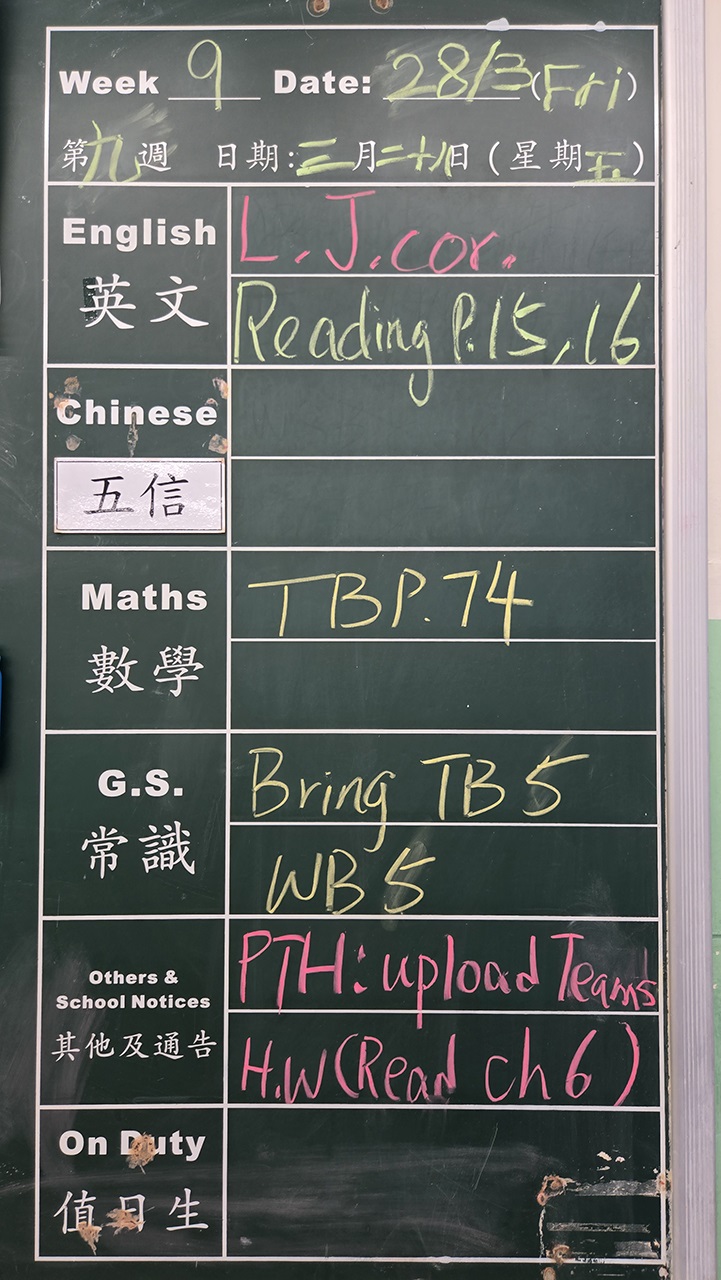 Week 9 Date: 28/3 (Fri)
第九週 日期:三月二十八日(星期五)
English
英文
L.J.cor.
Reading P.15,16
Chinese
五信
Maths
數學
TBP.74
G.S.
常識
Bring TB 5
WB 5
Others &
School Notices
其他及通告
PTH: upload Teams
H.W(Read ch 6)
On Duty
值日生